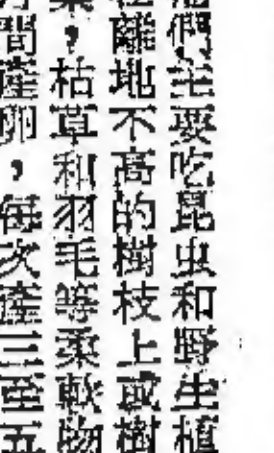 們主要吃昆虫和野生植
離地不高的樹枝上或樹
，枯草和羽毛等柔軟物
間產卵，每次產三至五